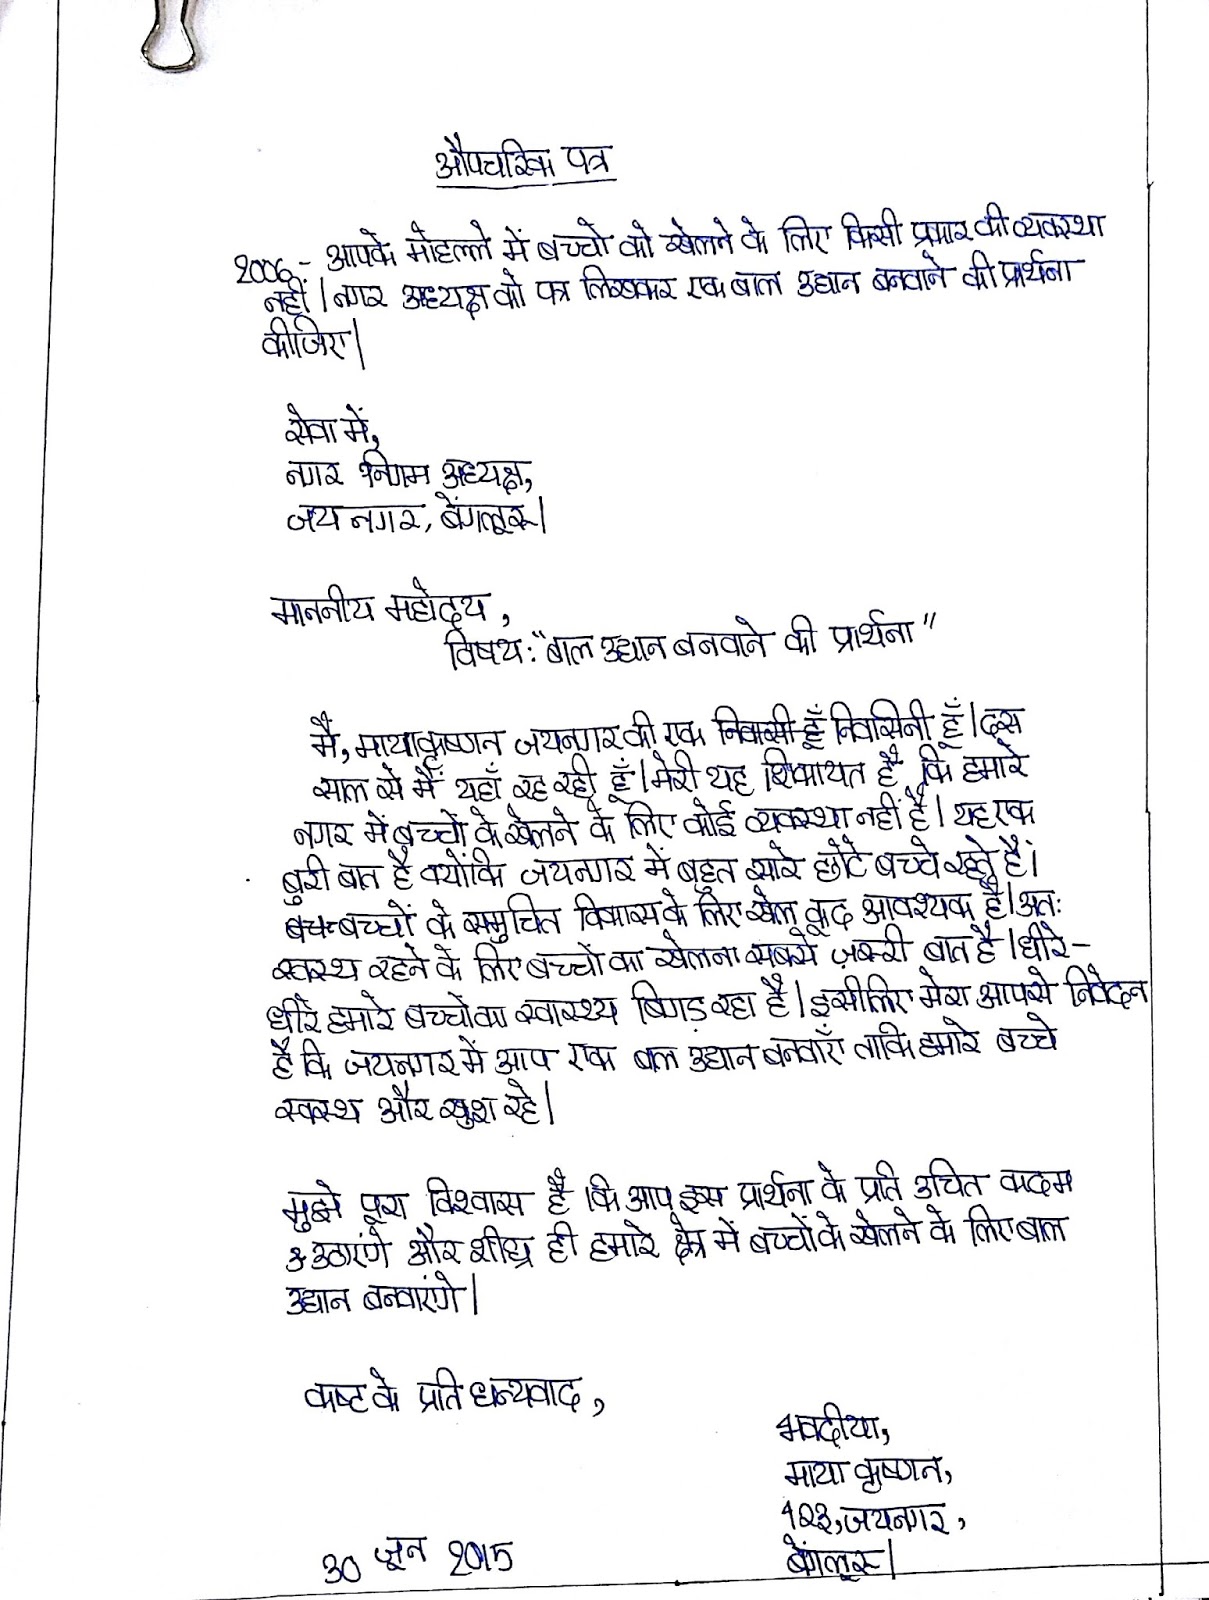 औपचारिक पत्र
2006- आपके मोहल्ले में बच्चों को खेलने के लिए किसी प्रकार की व्यवस्था
नहीं। नगर अध्यक्ष को पत्र लिखकर एक बाल उद्यान बनवाने की प्रार्थना
कीजिए।
सेवा में,
नगर निगम अध्यक्ष,
जय नगर, बेंगलूरू।
माननीय महोदय,
विषय: "बाल उद्यान बनवाने की प्रार्थना"
मैं, मायाकृष्णन जयनगर की एक निवासी हूँ निवासिनी हूँ। दस
साल से मैं यहाँ रह रही हूँ। मेरी यह शिकायत है कि हमारे
नगर में बच्चों के खेलने के लिए कोई व्यवस्था नहीं है। यह एक
बुरी बात है क्योंकि जयनगर में बहुत सारे छोटे बच्चे रहते हैं।
बच्च बच्चों के समुचित विकास के लिए खेल कूद आवश्यक है। अतः
स्वस्थ रहने के लिए बच्चों का खेलना सबसे ज़रूरी बात है। धीरे-
धीरे हमारे बच्चों का स्वास्थ्य बिगड़ रहा है। इसीलिए मेरा आपसे निवेदन
है कि जयनगर में आप एक बाल उद्यान बनवाएँ ताकि हमारे बच्चे
स्वस्थ और खुश रहे।
मुझे पूरा विश्वास है कि आप इस प्रार्थना के प्रति उचित कदम
उठाएंगे और शीघ्र ही हमारे क्षेत्र में बच्चों के खेलने के लिए बाल
उद्यान बनवाएंगे।
कष्ट के प्रति धन्यवाद,
भवदीया,
माया कृष्णन,
123, जयनगर,
बेंगलूरू।
30 जून 2015